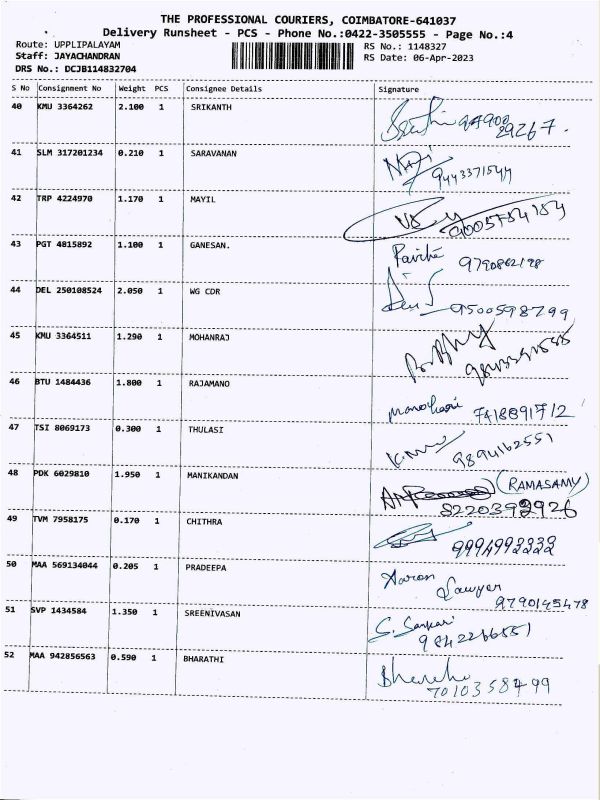 THE PROFESSIONAL COURIERS, COIMBATORE-641037
Delivery Runsheet - PCS - Phone No.:0422-3505555 - Page No.:4
Route: UPPLIPALAYAM RS No.: 1148327
Staff: JAYACHANDRAN RS Date: 06-Apr-2023
DRS No.: DCJB114832704
S No Consignment No Weight PCS Consignee Details Signature
40 KMU 3364262 2.100 1 SRIKANTH
41 SLM 317201234 0.210 1 SARAVANAN
9443371544
42 TRP 4224970 1.170 1 MAYIL
43 PGT 4815892 1.100 1 GANESAN.
44 DEL 250108524 2.050 1 WG CDR
9500598799
45 KMU 3364511 1.290 1 MOHANRAJ
46 BTU 1484436 1.800 1 RAJAMANO
Manohari 7418891712
47 TSI 8069173 0.300 1 THULASI
9894162551
48 PDK 6029810 1.950 1 MANIKANDAN
(RAMASAMY)
8220392926
49 TVM 7958175 0.170 1 CHITHRA
9994992222
50 MAA 569134044 0.205 1 PRADEEPA
Aaron
Sawyer
9790145478
51 SVP 1434584 1.350 1 SREENIVASAN
S. Sankari
9842266551
52 MAA 942856563 0.590 1 BHARATHI
7010358499